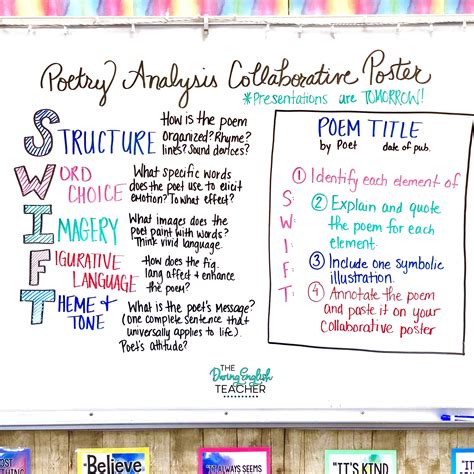 Poetry Analysis Collaborative Poster
*Presentations are TOMORROW!
STRUCTURE
How is the poem
organized? Rhyme?
lines? Sound devices?
WORD
CHOICE
What specific words
does the poet use to elicit
emotion? To what effect?
IMAGERY
What images does the
poet paint with words?
Think vivid language.
FIGURATIVE
LANGUAGE
How does the fig.
lang affect & enhance
the poem?
THEME &
TONE
What is the poet's Message?
(one complete sentence that
universally applies to life).
Poet's attitude?
POEM TITLE
by Poet date of pub.
S
W
I
F
T
① Identify each element of
② Explain and quote
the poem for each
element.
③ Include one symbolic
illustration.
④ Annotate the poem
and paste it on your
Collaborative poster
THE
Daring English
TEACHER
"Believe
"IT ALWAYS SEEMS
"IT'S KIND